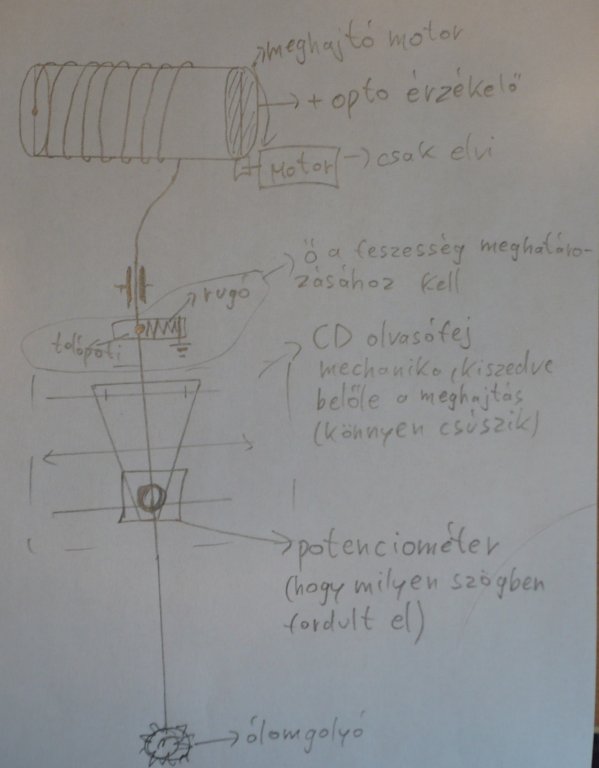 meghajtó motor
+ opto érzékelő
Motor
csak elvi
ő a feszesség meghatáro-
zásához kell
rugó
tolópoti
CD olvasófej
mechanika, kiszedve
belőle a meghajtás
(könnyen csúszik)
potenciométer
(hogy milyen szögben
fordult el)
ólomgolyó